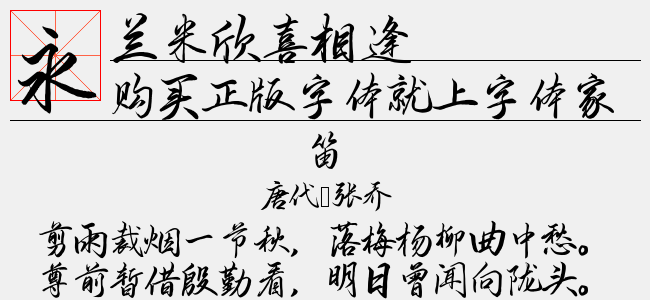 永
兰米欣喜相逢
购买正版字体就上字体家
笛
唐代▯张乔
剪雨裁烟一节秋，落梅杨柳曲中愁。
尊前暂借殷勤看，明日曾闻向陇头。